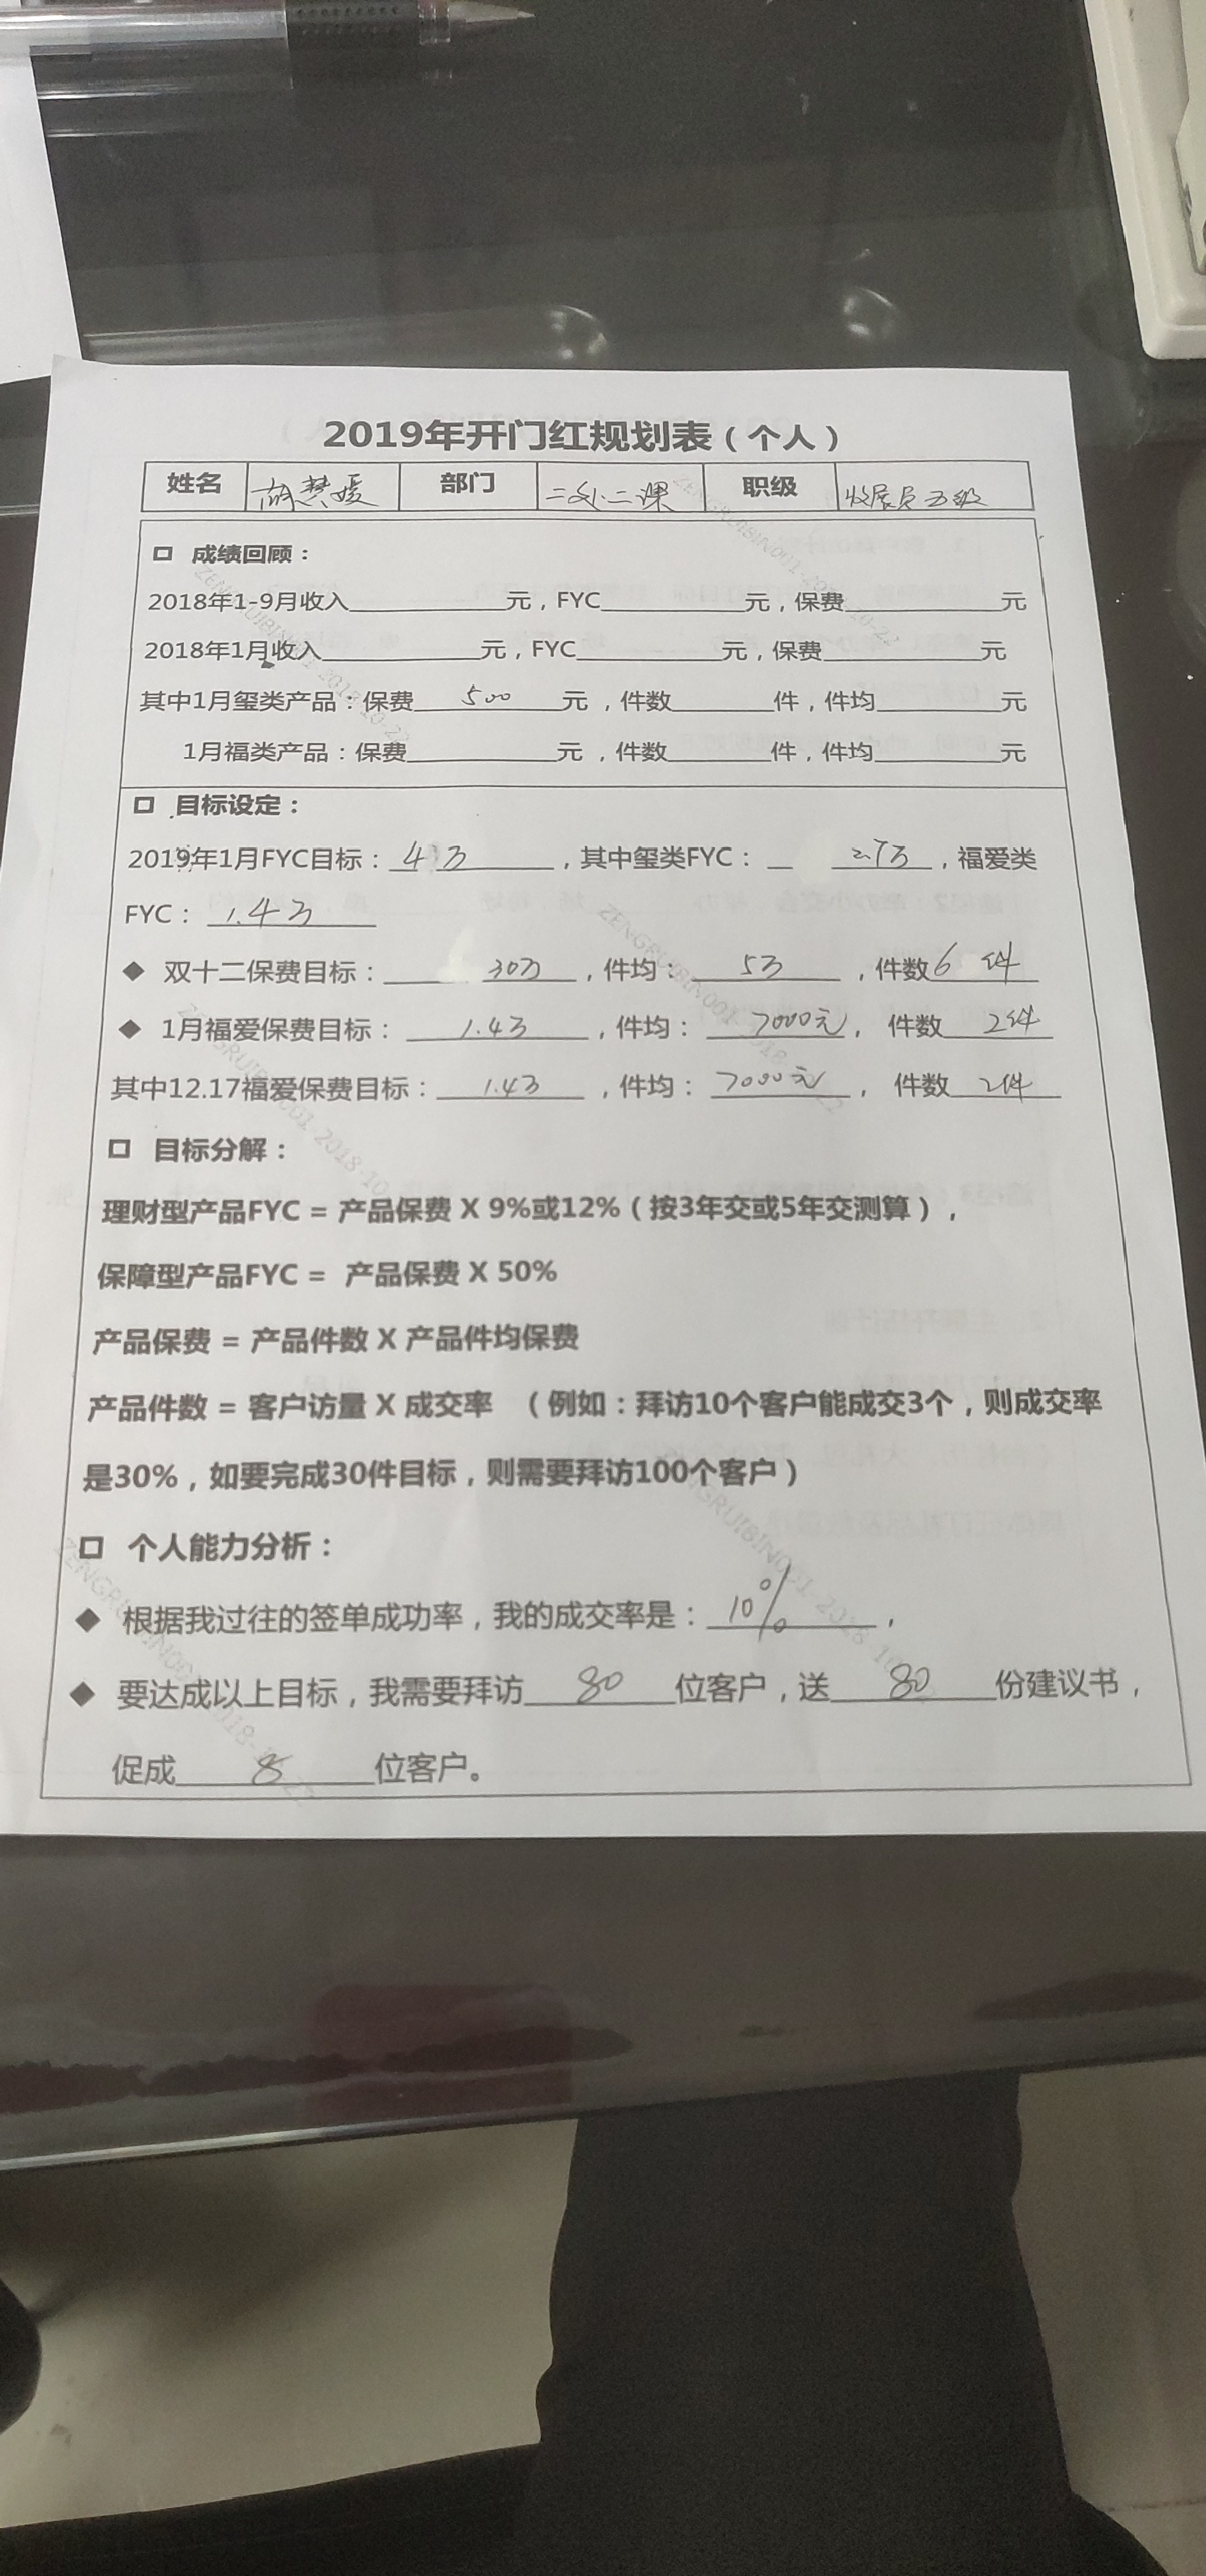 2019年开门红规划表（个人）
姓名 胡慧媛 部门 二外二课 职级 收展员五级
□ 成绩回顾：
2018年1-9月收入__________元，FYC__________元，保费__________元
2018年1月收入__________元，FYC__________元，保费__________元
其中1月玺类产品：保费 500 元，件数______件，件均______元
1月福类产品：保费__________元，件数______件，件均______元
□ 目标设定：
2019年1月FYC目标：4万，其中玺类FYC：2.7万，福爱类
FYC：1.4万
◆ 双十二保费目标：30万，件均：5万，件数6件
◆ 1月福爱保费目标：1.4万，件均：7000元，件数2件
其中12.17福爱保费目标：1.4万，件均：7000元，件数2件
□ 目标分解：
理财型产品FYC = 产品保费 X 9%或12%（按3年交或5年交测算），
保障型产品FYC = 产品保费 X 50%
产品保费 = 产品件数 X 产品件均保费
产品件数 = 客户访量 X 成交率 （例如：拜访10个客户能成交3个，则成交率
是30%，如要完成30件目标，则需要拜访100个客户）
□ 个人能力分析：
◆ 根据我过往的签单成功率，我的成交率是：10%，
◆ 要达成以上目标，我需要拜访 80 位客户，送 80 份建议书，
促成 8 位客户。
ZENGRUIBIN001 2018-10-22